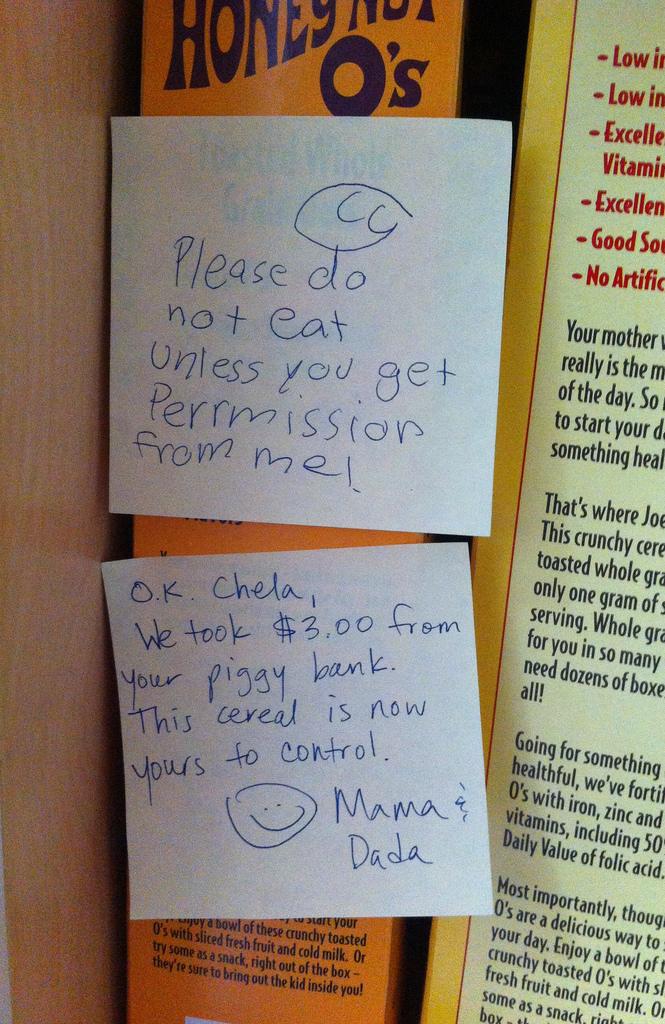 HONEY NUT
O's
Toasted Whole
CC
Please do
not eat
unless you get
Perrmission
from me!
O.K. Chela,
We took $3.00 from
your piggy bank.
This cereal is now
yours to control.
Mama &
Dada
to start your
Enjoy a bowl of these crunchy toasted
O's with sliced fresh fruit and cold milk. Or
try some as a snack, right out of the box –
they're sure to bring out the kid inside you!
- Low
- Low
-
Vitamin
-
- Good
- No
Your mother
really is the
of the day. So
to start your
something
That's where Joe
This crunchy
toasted whole
only one gram of
serving. Whole
for you in so many
need dozens of
all!
Going for something
healthful, we've
O's with iron, zinc and
vitamins, including 50
Daily Value of folic acid.
Most importantly,
O's are a delicious way to
your day. Enjoy a bowl of
crunchy toasted O's with
fresh fruit and cold milk. Or
some as a snack, right
box –